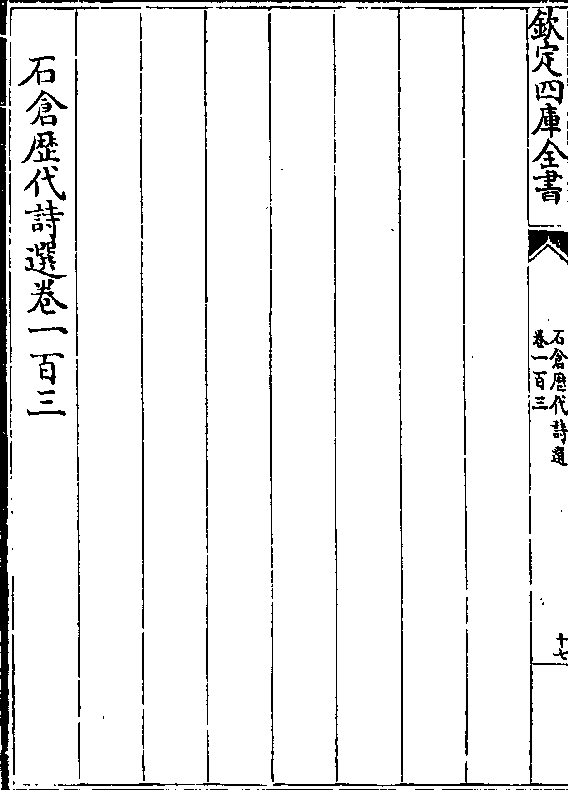 欽定四庫全書
石倉歴代詩選
卷一百三
十七
石倉歴代詩選卷一百三